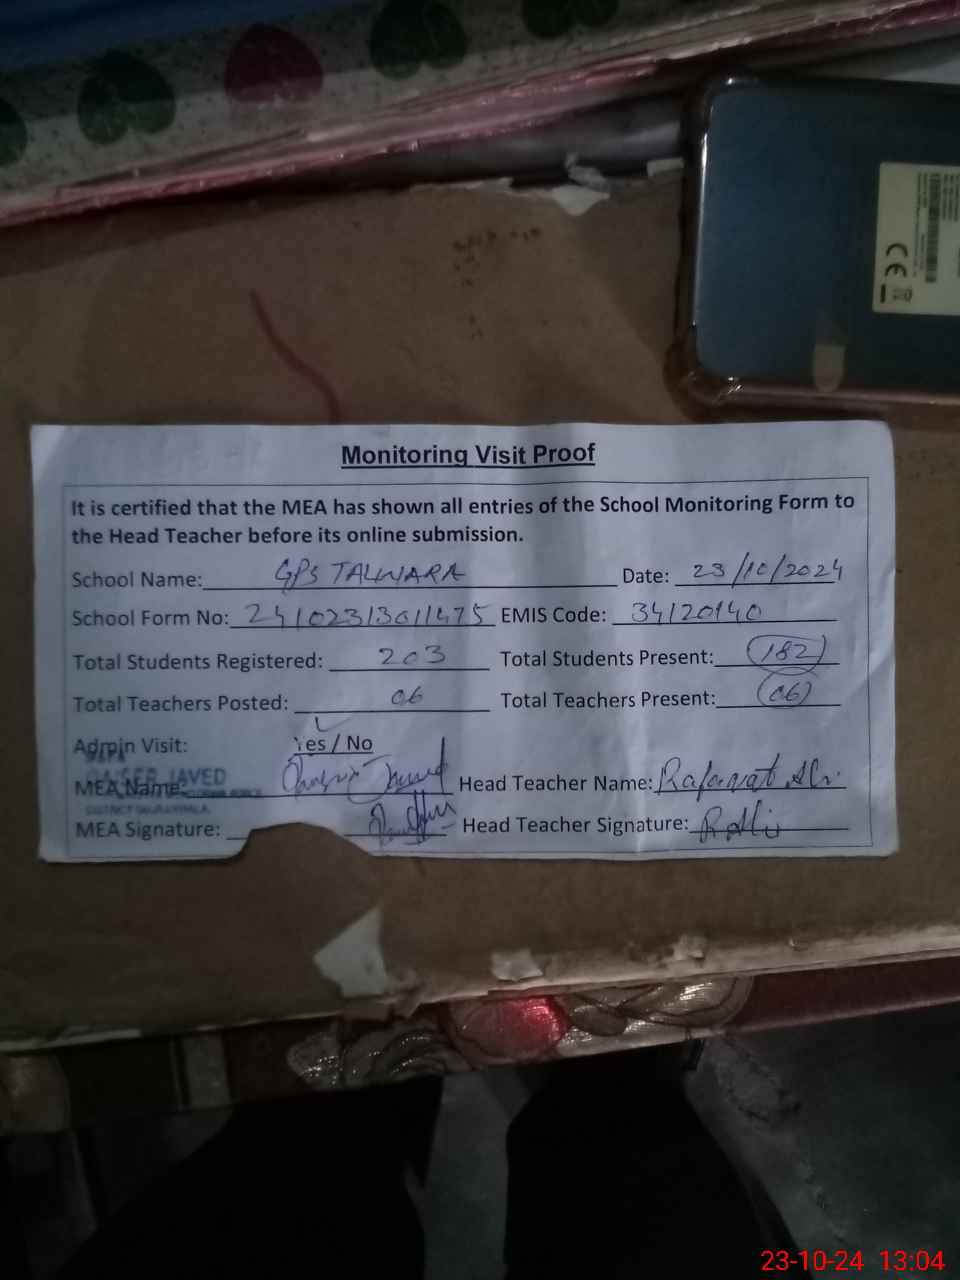 Monitoring Visit Proof
It is certified that the MEA has shown all entries of the School Monitoring Form to
the Head Teacher before its online submission.
School Name: GPS TALWARA Date: 23/10/2024
School Form No: 241023/301/475 EMIS Code: 34120140
Total Students Registered: 203 Total Students Present: 182
Total Teachers Posted: 06 Total Teachers Present: 06
Admin Visit: Yes / No
QAISER JAVED
MEA Name: Javed Head Teacher Name: Rafaqat Ali
MEA Signature: Head Teacher Signature: R Ali
CE
23-10-24 13:04